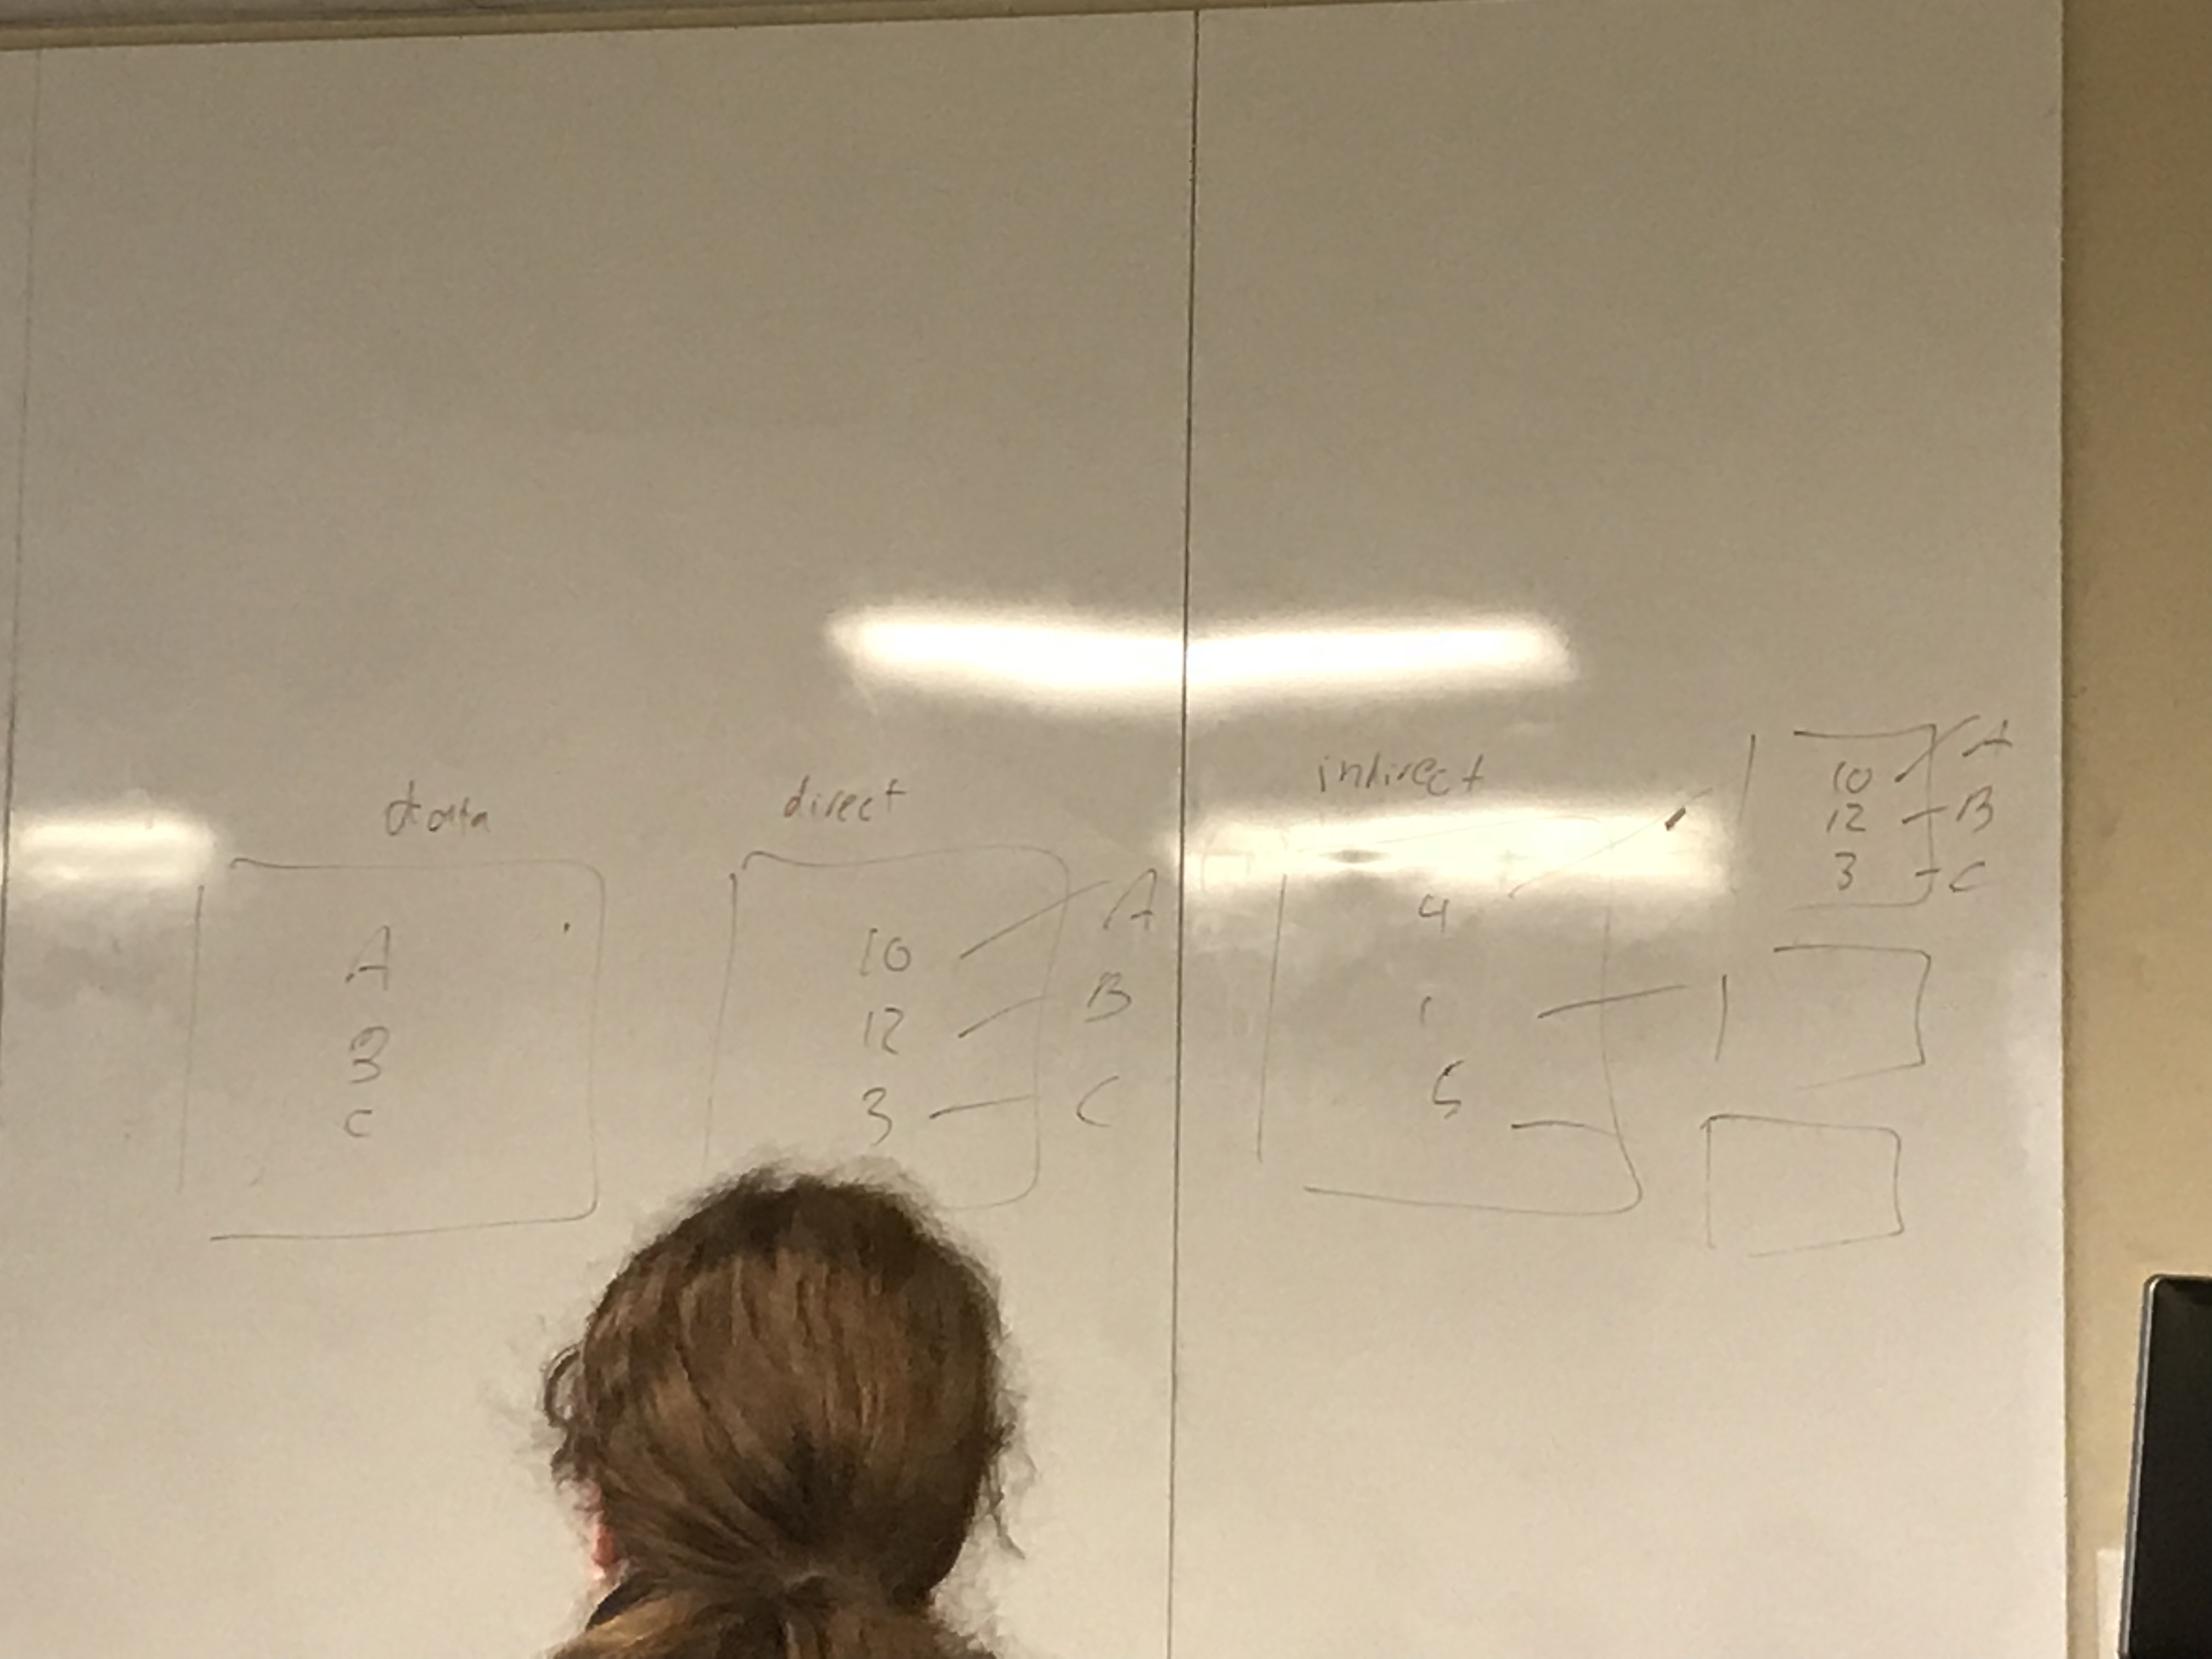 data
A
B
C
direct
10 A
12 B
3 C
indirect
4
1
5
10 A
12 B
3 C